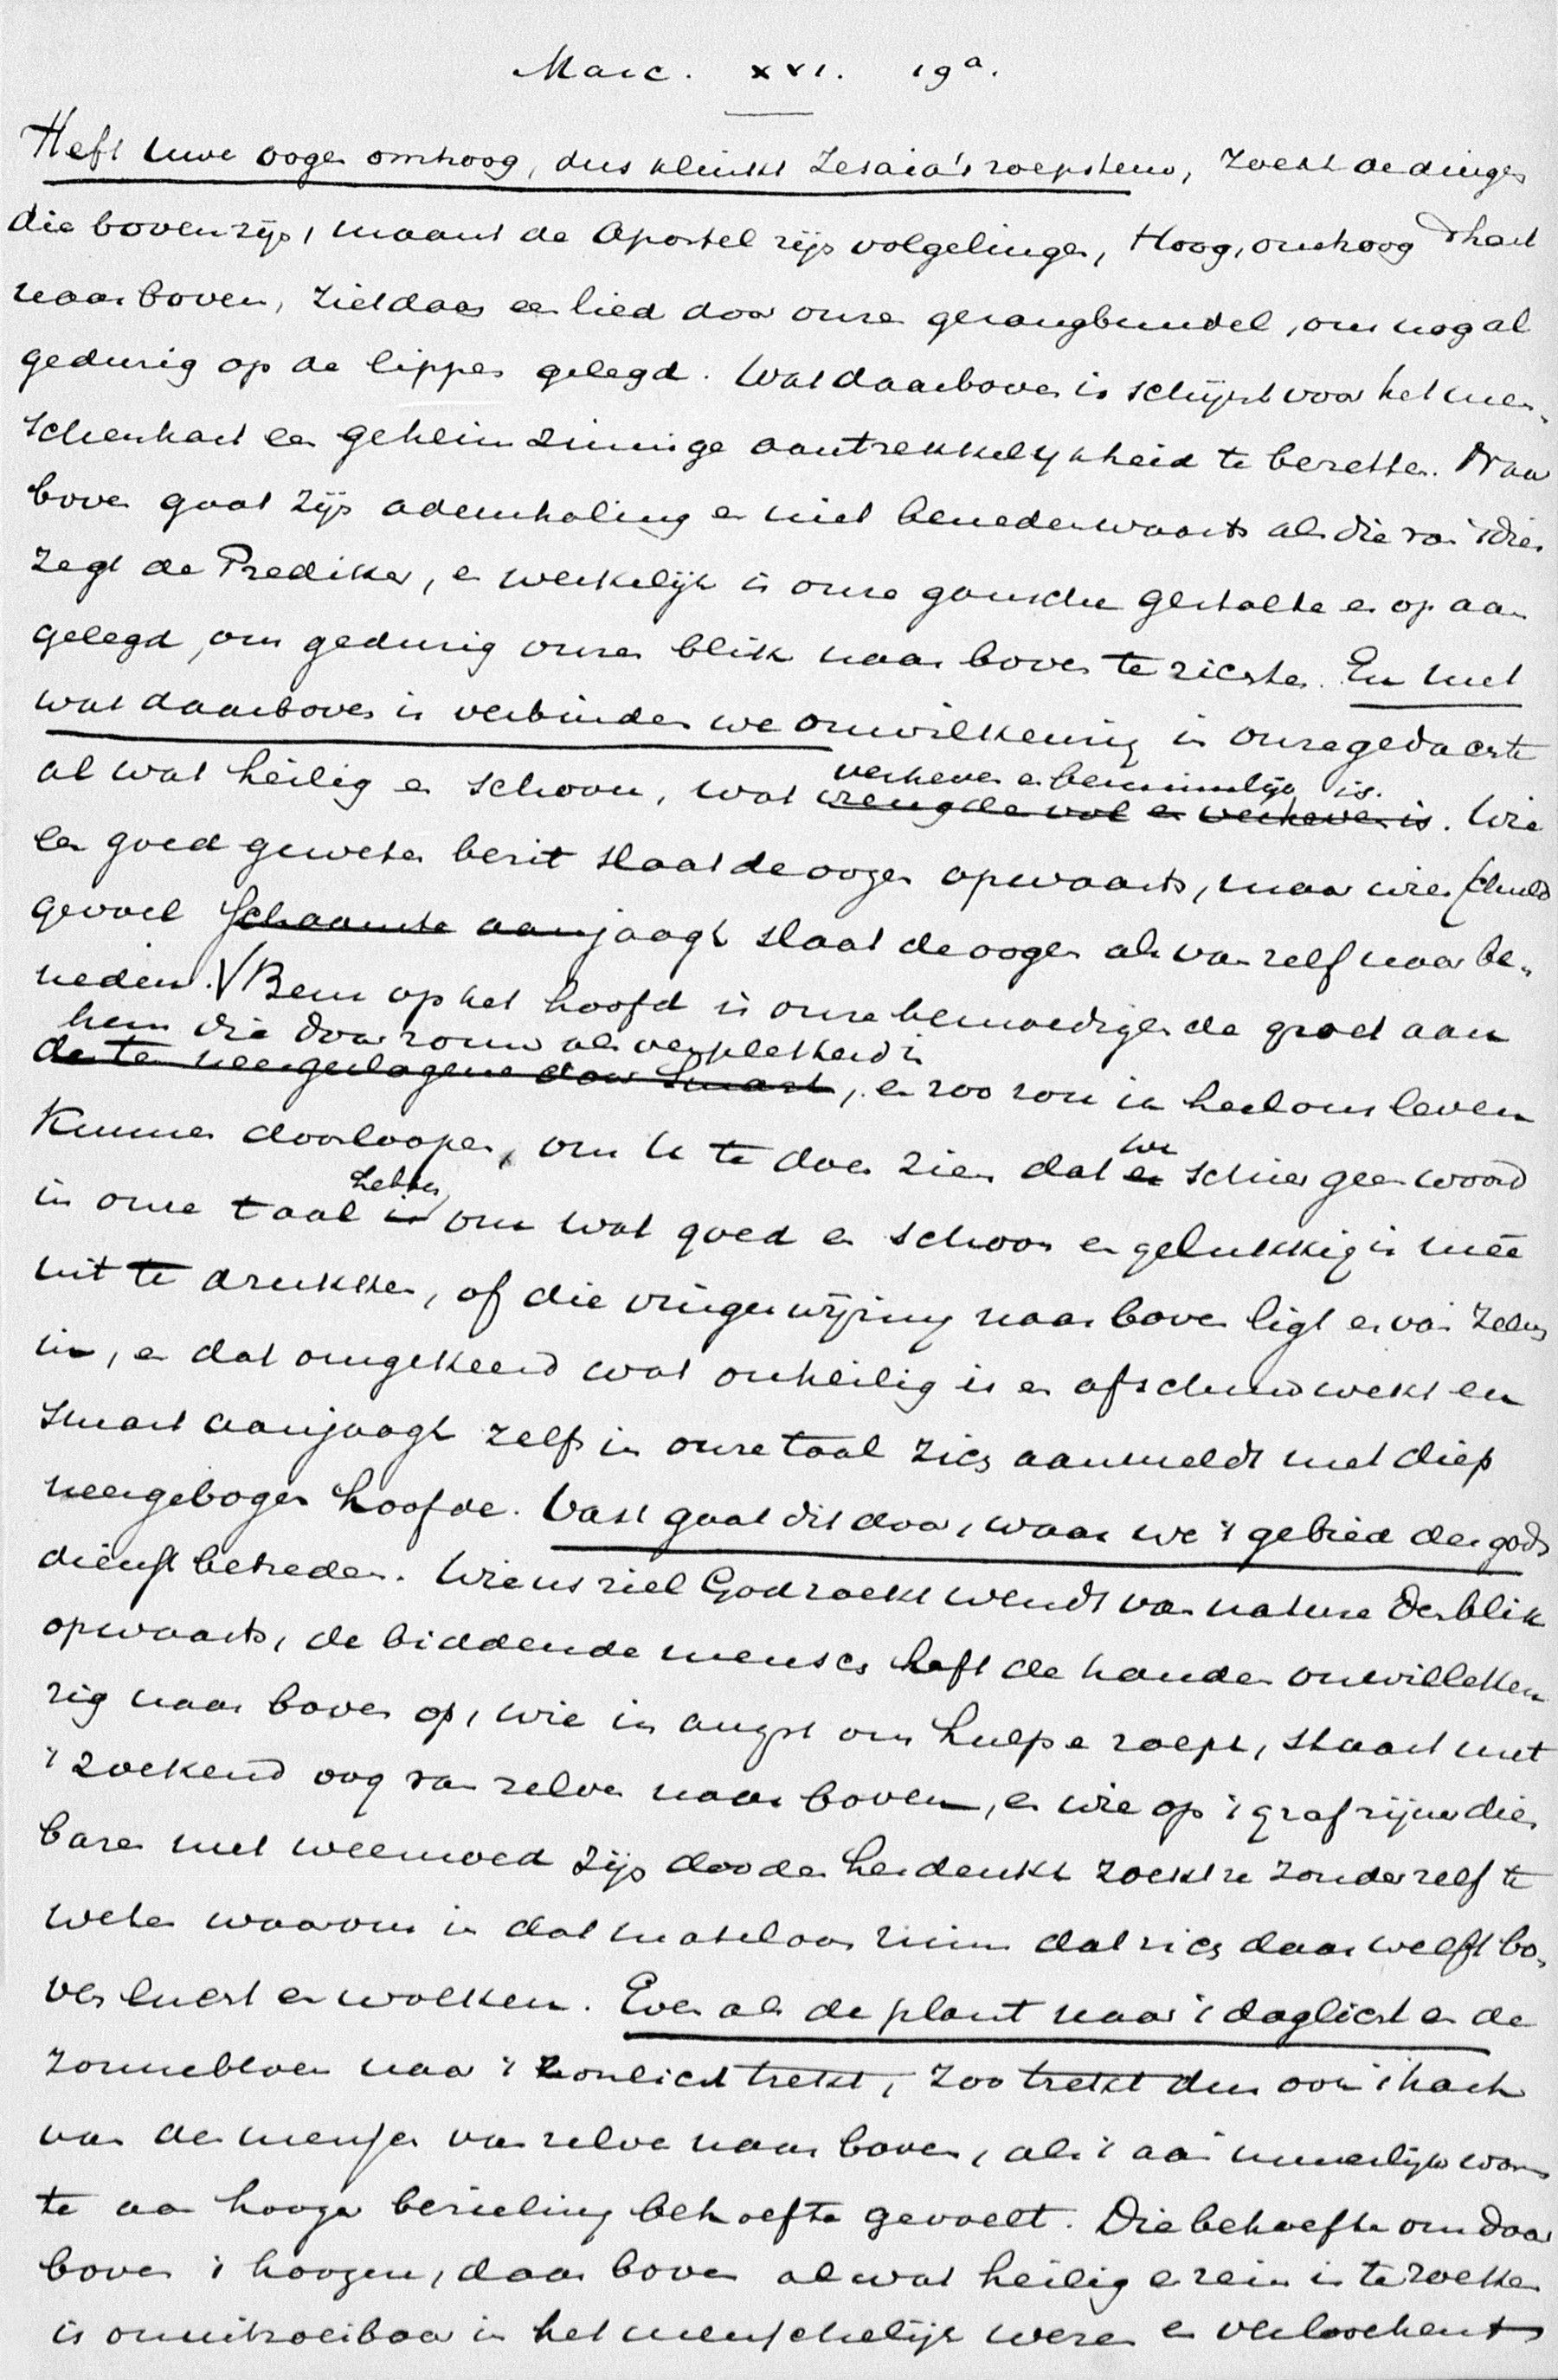 Marc. XVI. 19a.
Heft uwe oogen omhoog, dus klinkt Jesaia's roepstem, zoekt de dingen
die boven zijn, maant de Apostel zijn volgelingen, Hoog, omhoog 't hart
naar boven, ziet daar een lied door onze gezangbundel, ons nog al
gedurig op de lippen gelegd. Wat daarboven is schijnt voor het men-
schenhart een geheimzinnige aantrekkelijkheid te bezitten. Naar
boven gaat zijn ademhaling en niet benedenwaarts als die van 't dier
zegt de Prediker, en werkelijk is onze gansche gestalte er op aan
gelegd, om gedurig onzen blik naar boven te richten. En met
wat daarboven is verbinden we onwilkeurig in onze gedachte
al wat heilig en schoon, wat verheven en beminnelijk is. Wie
een goed geweten bezit slaat de oogen opwaarts, maar wien schuld
gevoel jaagt slaat de oogen als van zelf naar be-
neden. Beur op het hoofd is onze bemoedigende groet aan
hem die door rouw als verpletterd is, en zoo zou ik heel ons leven
kunnen doorloopen, om U te doen zien dat we schier geen woord
in onze taal hebben, om wat goed en schoon en gelukkig is meê
uit te drukken, of die vingerwijzing naar boven ligt er van zelven
in, en dat omgekeerd wat onheilig is en afschuw wekt en
smart aanjaagt zelfs in onze taal zich aanmeldt met diep
neergebogen hoofde. Vast gaat dit door, waar we 't gebied der gods
dienst betreden. Wiens ziel God zoekt wendt van nature den blik
opwaarts, de biddende mensch heft de handen onwilleken
rig naar boven op, wie in angst om hulpe roept, staart met
't zoekend oog van zelve naar boven, en wie op 't graf zijner dier
baren met weemoed zijn dooden herdenkt zoekt ze zonder zelf te
weten waarom in dat mateloos ruim dat zich daar welft bo-
ven lucht en wolken. Even als de plant naar 't daglicht en de
zonnebloem naar 't zonlicht trekt, zoo trekt dus ook 't hart
van den mensch van zelve naar boven, als 't aan innerlijke warm
te aan hooger bezieling behoefte gevoelt. Die behoefte om daar
boven 't hoogere, daar boven al wat heilig en rein is te zoeken
is onuitroeibaar in het menschelijk wezen en verloochent